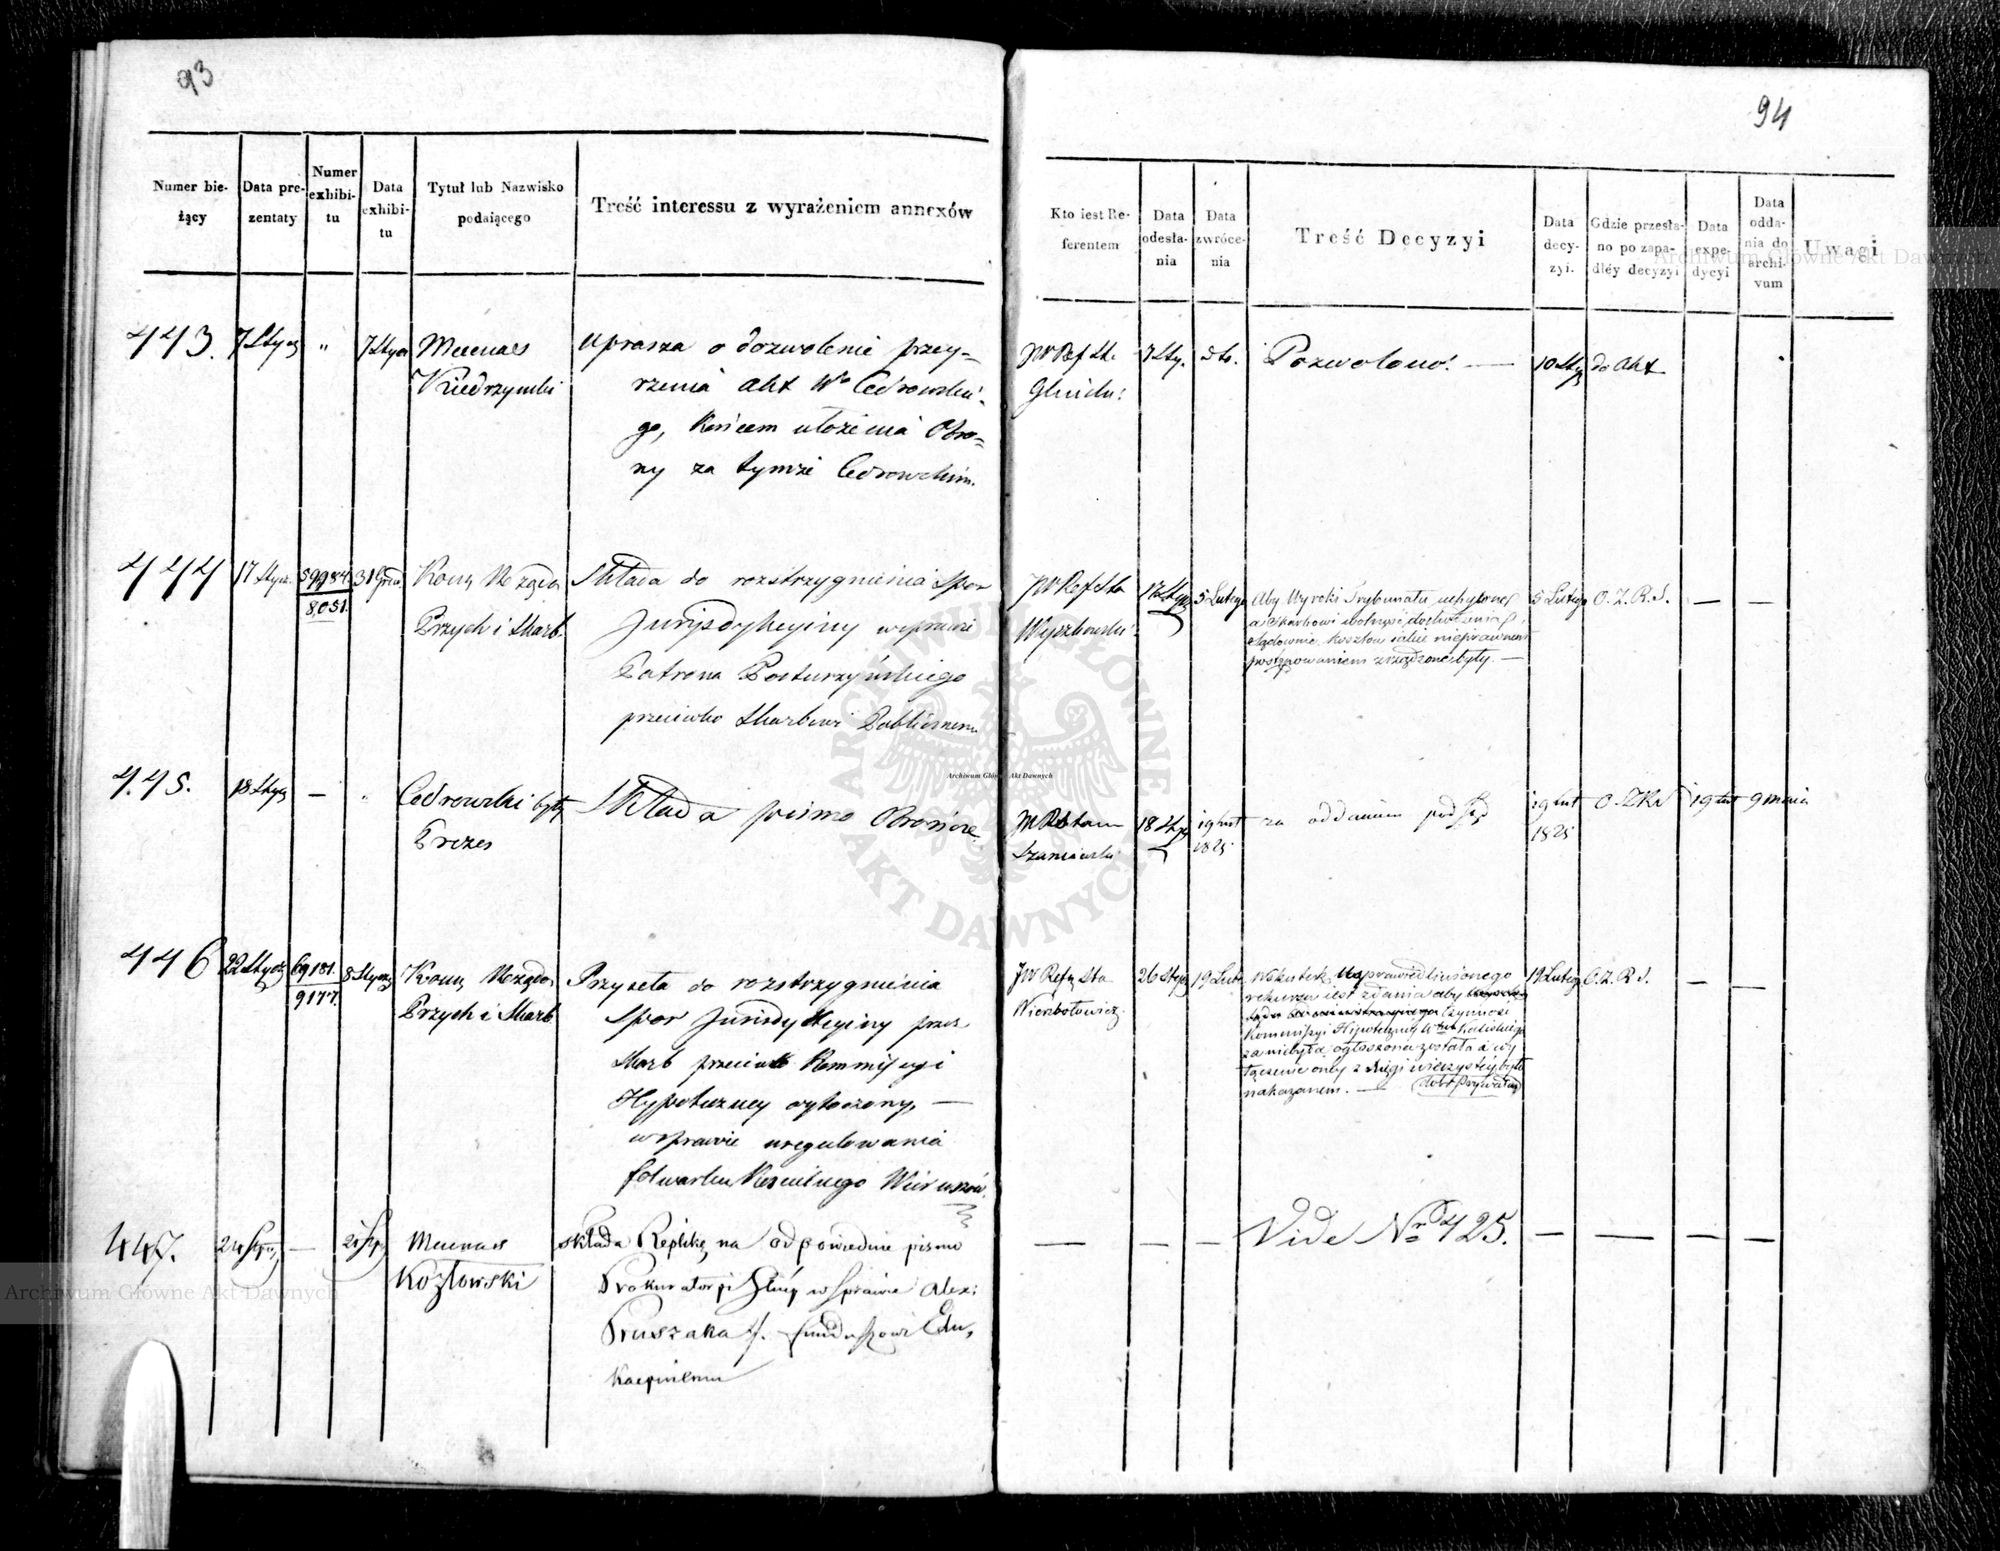 93
Numer bie-
żący
Data pre-
zentaty
Numer
exhibi-
tu
Data
exhibi-
tu
Tytuł lub Nazwisko
podaiącego
Treść interessu z wyrażeniem annexów
443. 7 Stycz " 7 Stycz
Mecenas
Kiedrzyński
uprasza o dozwolenie przey-
rzenia akt Wo Cedrowskie-
go, końcem ułożenia Obro-
ny za tymże Cedrowskim.
444 17 Stycz. 59984 31 Grud.
8,051.
Kom Rządo
Przych i Skarb.
Składa do rozstrzygnienia Spor
Jurysdykcyiny w sprawie
Patrona Posturzyńskiego
przeciwko Skarbowi Publicznemu
445. 18 Stycz —
Cedrowski były
Prezes
Składa pismo Obrończe
446 22 Stycz 69181. 8 Stycz
9177.
Kom Rządo
Przych i Skarb
Przyseła do rozstrzygnienia
Spor Jurisdykcyiny przez
Skarb przeciwko Kommissyi
Hypoteczney wytoczony, —
w sprawie uregulowania
folwarku Wieruszów.
447. 24 Stycz —
Mecenas
Kozłowski
składa Replikę na odpowiednie pismo
Prokuratoryi w Sprawie Alex:
Pruszaka funduszowi Edu,
kacyinemu
94
Kto iest Re-
ferentem
Data
odesła-
nia
Data
zwróce-
nia
Treść Decyzyi
Data
decy-
zyi.
Gdzie przesła-
no po zapa-
dłéy decyzyi
Data
expe-
dycyi
Data
odda-
nia do
archi-
vum
Uwagi
JW Ref St.
7 Sty. Pozwolono. — 10 Sty do Akt
JW Ref Sta
Wyszkowski
17 Stycz 5 Lutego
Aby Wyroki Trybunału uchylone
a Skarbowi wolność dochodzenia
Sądownie kosztów iakie nieprawnem
postępowaniem zrządzone były. —
5 Lutego O. Z. R. S. — —
JW Ref Stanu
Szaniawski
18 Stycz 19 Lut
1825
za oddaniem pod Sąd
19 Lut
1825
19 Lut 9 maia
JW Ref Sta
Wierzbołowicz.
26 Stycz 19 Lut
rekursu iest zdania aby
czynność
Kommissyi Hipoteczney Wtwa Kaliskiego
za niebyłą ogłoszona została a wy
łączenie onéy z księgi wieczystéy było
nakazanem. —
19 Lutego O. Z. R. S. — —
— — — Vide No 425. — — — —
Archiwum Główne Akt Dawnych
ARCHIWUM GŁÓWNE
AKT DAWNYCH
Archiwum Główne Akt Dawnych
Archiwum Główne Akt Dawnych